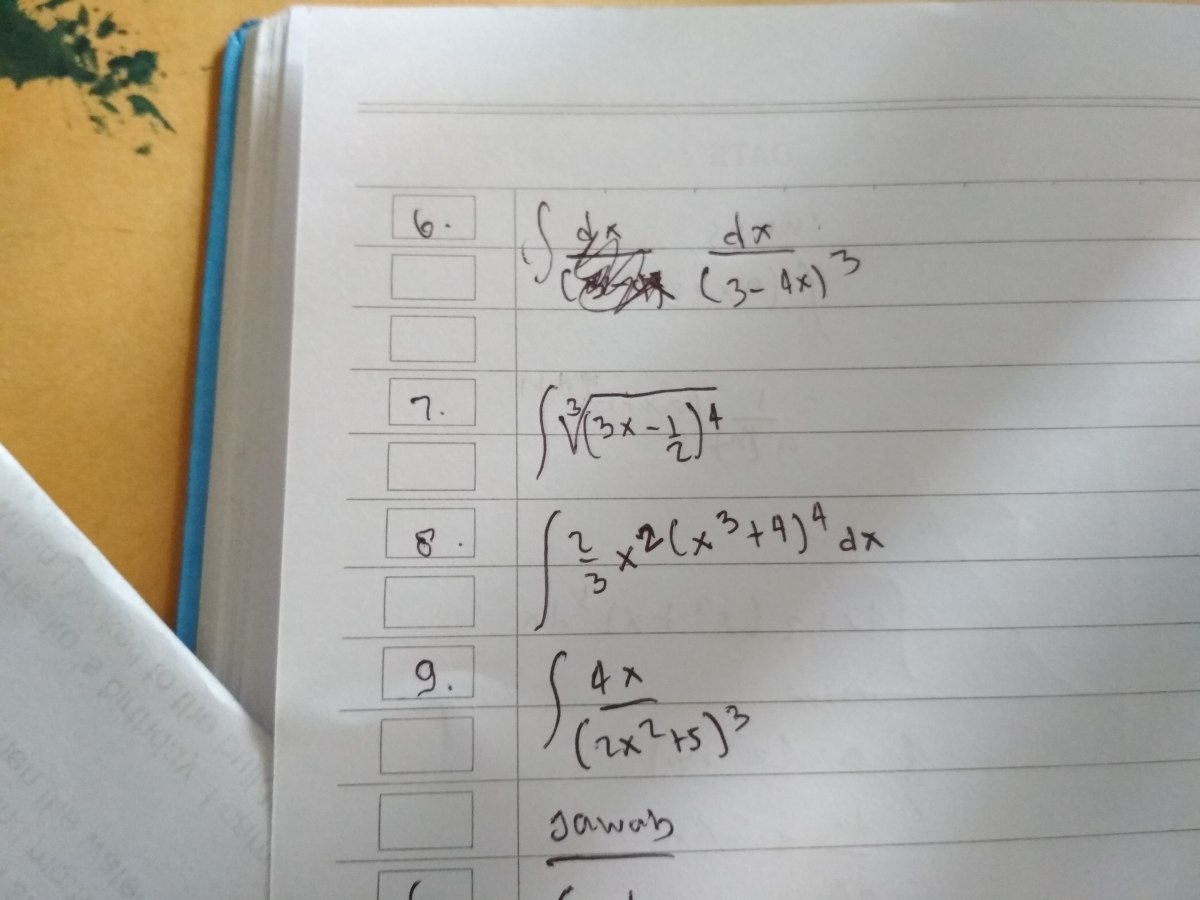 6. ∫ dx / (3 - 4x)³
7. ∫ ³√(3x - 1/2)⁴
8. ∫ 2/3 x²(x³ + 4)⁴ dx
9. ∫ 4x / (2x² + 5)³
Jawab